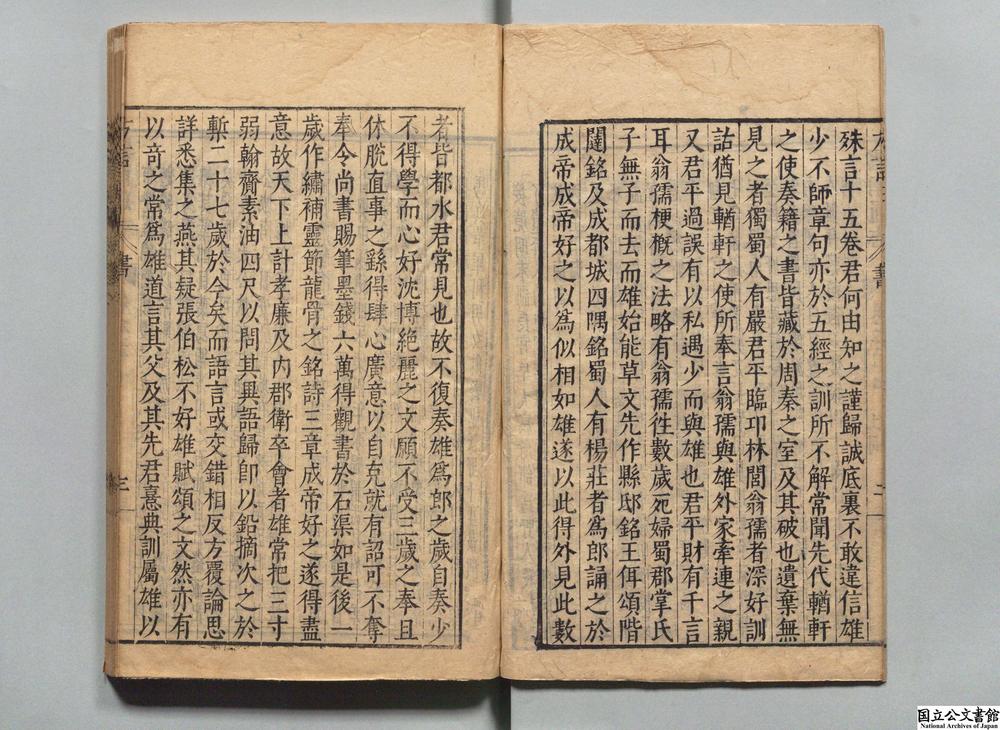 殊言十五卷君何由知之謹歸誠底裏不敢違信雄
少不師章句亦於五經之訓所不解常聞先代輶軒
之使奏籍之書皆藏於周秦之室及其破也遺棄無
見之者獨蜀人有嚴君平臨邛林閭翁孺者深好訓
詁猶見輶軒之使所奉言翁孺與雄外家牽連之親
又君平過誤有以私遇少而與雄也君平財有千言
耳翁孺梗概之法略有翁孺徃數歲死婦蜀郡掌氏
子無子而去而雄始能草文先作縣邸銘王佴頌階
闥銘及成都城四隅銘蜀人有楊莊者為郎誦之於
成帝成帝好之以為似相如雄遂以此得外見此數
者皆都水君常見也故不復奏雄為郎之歲自奏少
不得學而心好沈博絶麗之文願不受三歲之奉且
休脫直事之繇得肆心廣意以自克就有詔可不奪
奉令尚書賜筆墨錢六萬得觀書於石渠如是後一
歲作繡補靈節龍骨之銘詩三章成帝好之遂得盡
意故天下上計孝廉及內郡衛卒會者雄常把三寸
弱翰齎素油四尺以問其異語歸即以鉛摘次之於
槧二十七歲於今矣而語言或交錯相反方覆論思
詳悉集之燕其疑張伯松不好雄賦頌之文然亦有
以奇之常為雄道言其父及其先君憙典訓屬雄以
書
三
国立公文書館
National Archives of Japan